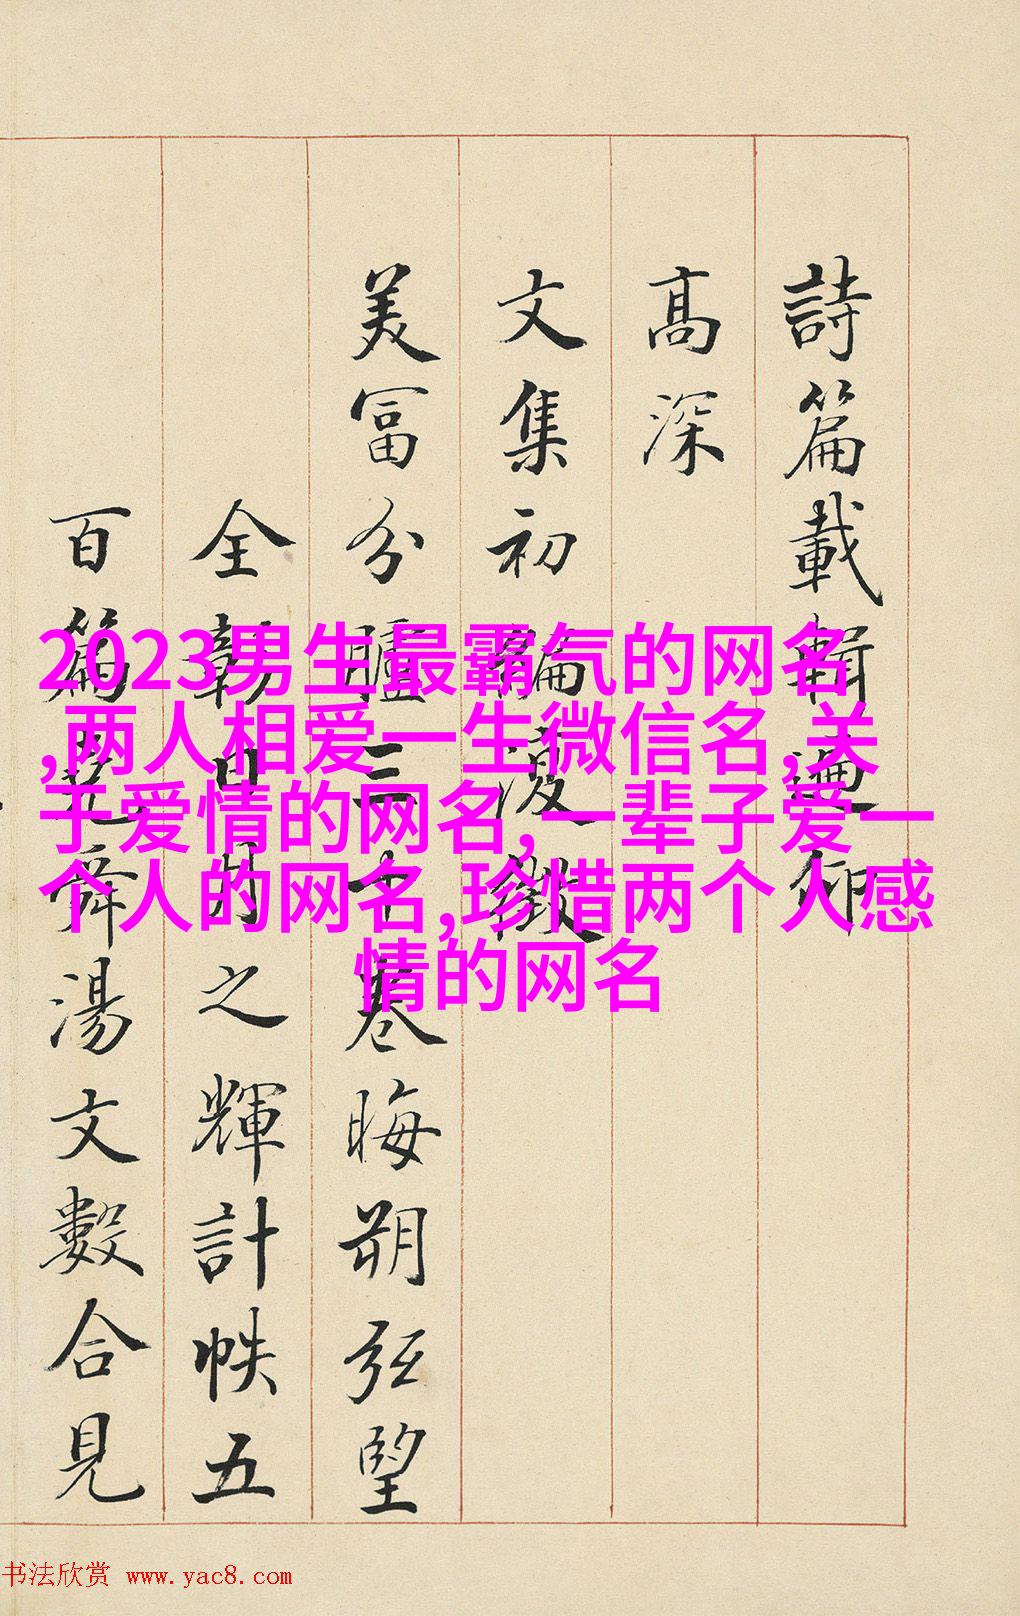 詩篇載輯遡仰
高深
文集初編復徴
美富分臚三十卷晦朔弦望
全彰日月之輝計帙五
百篇堯舜湯文數合見
2023男生最霸气的网名
,两人相爱一生微信名,关
于爱情的网名,一辈子爱一
个人的网名,珍惜两个人感
情的网名
书法欣赏 www.yac8.com